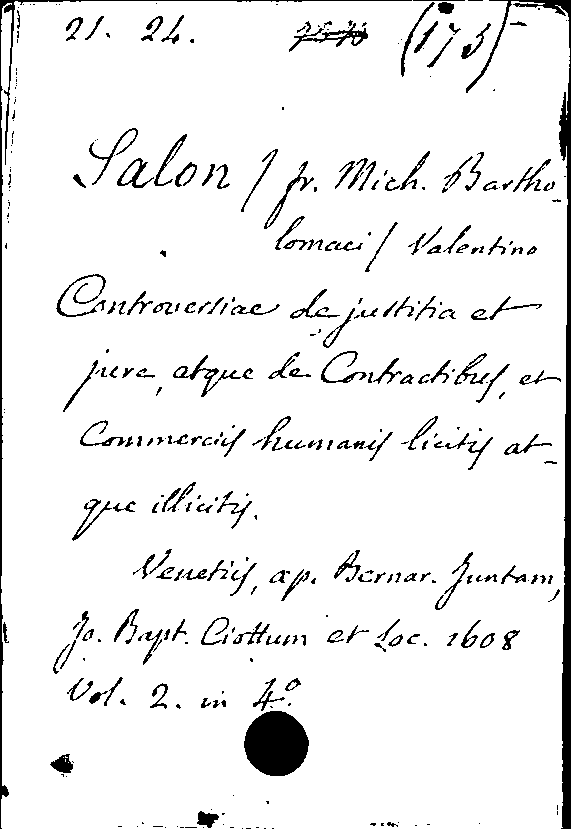 21. 24. (175)
Salon / fr. Mich. Bartho-
lomaei / Valentino
Controversiae de justitia et
jure, atque de Contractibus, et
Commerciis humanis licitis at-
que illicitis.
Venetiis, ap. Bernar. Juntam,
Jo. Bapt. Ciottum et Soc. 1608
Vol. 2. in 4º.